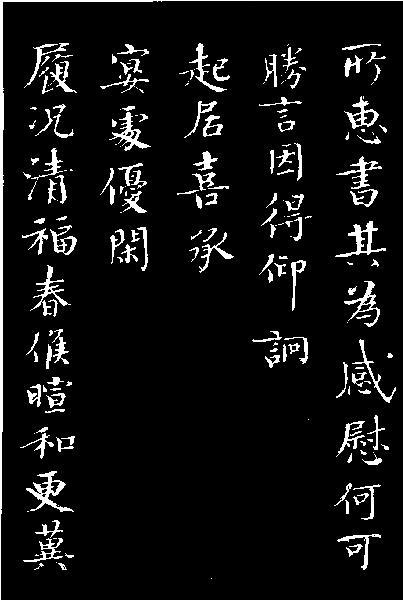 所惠書其為感慰何可
勝言因得仰詗
起居喜承
宴處優閑
履况清福春候暄和更冀